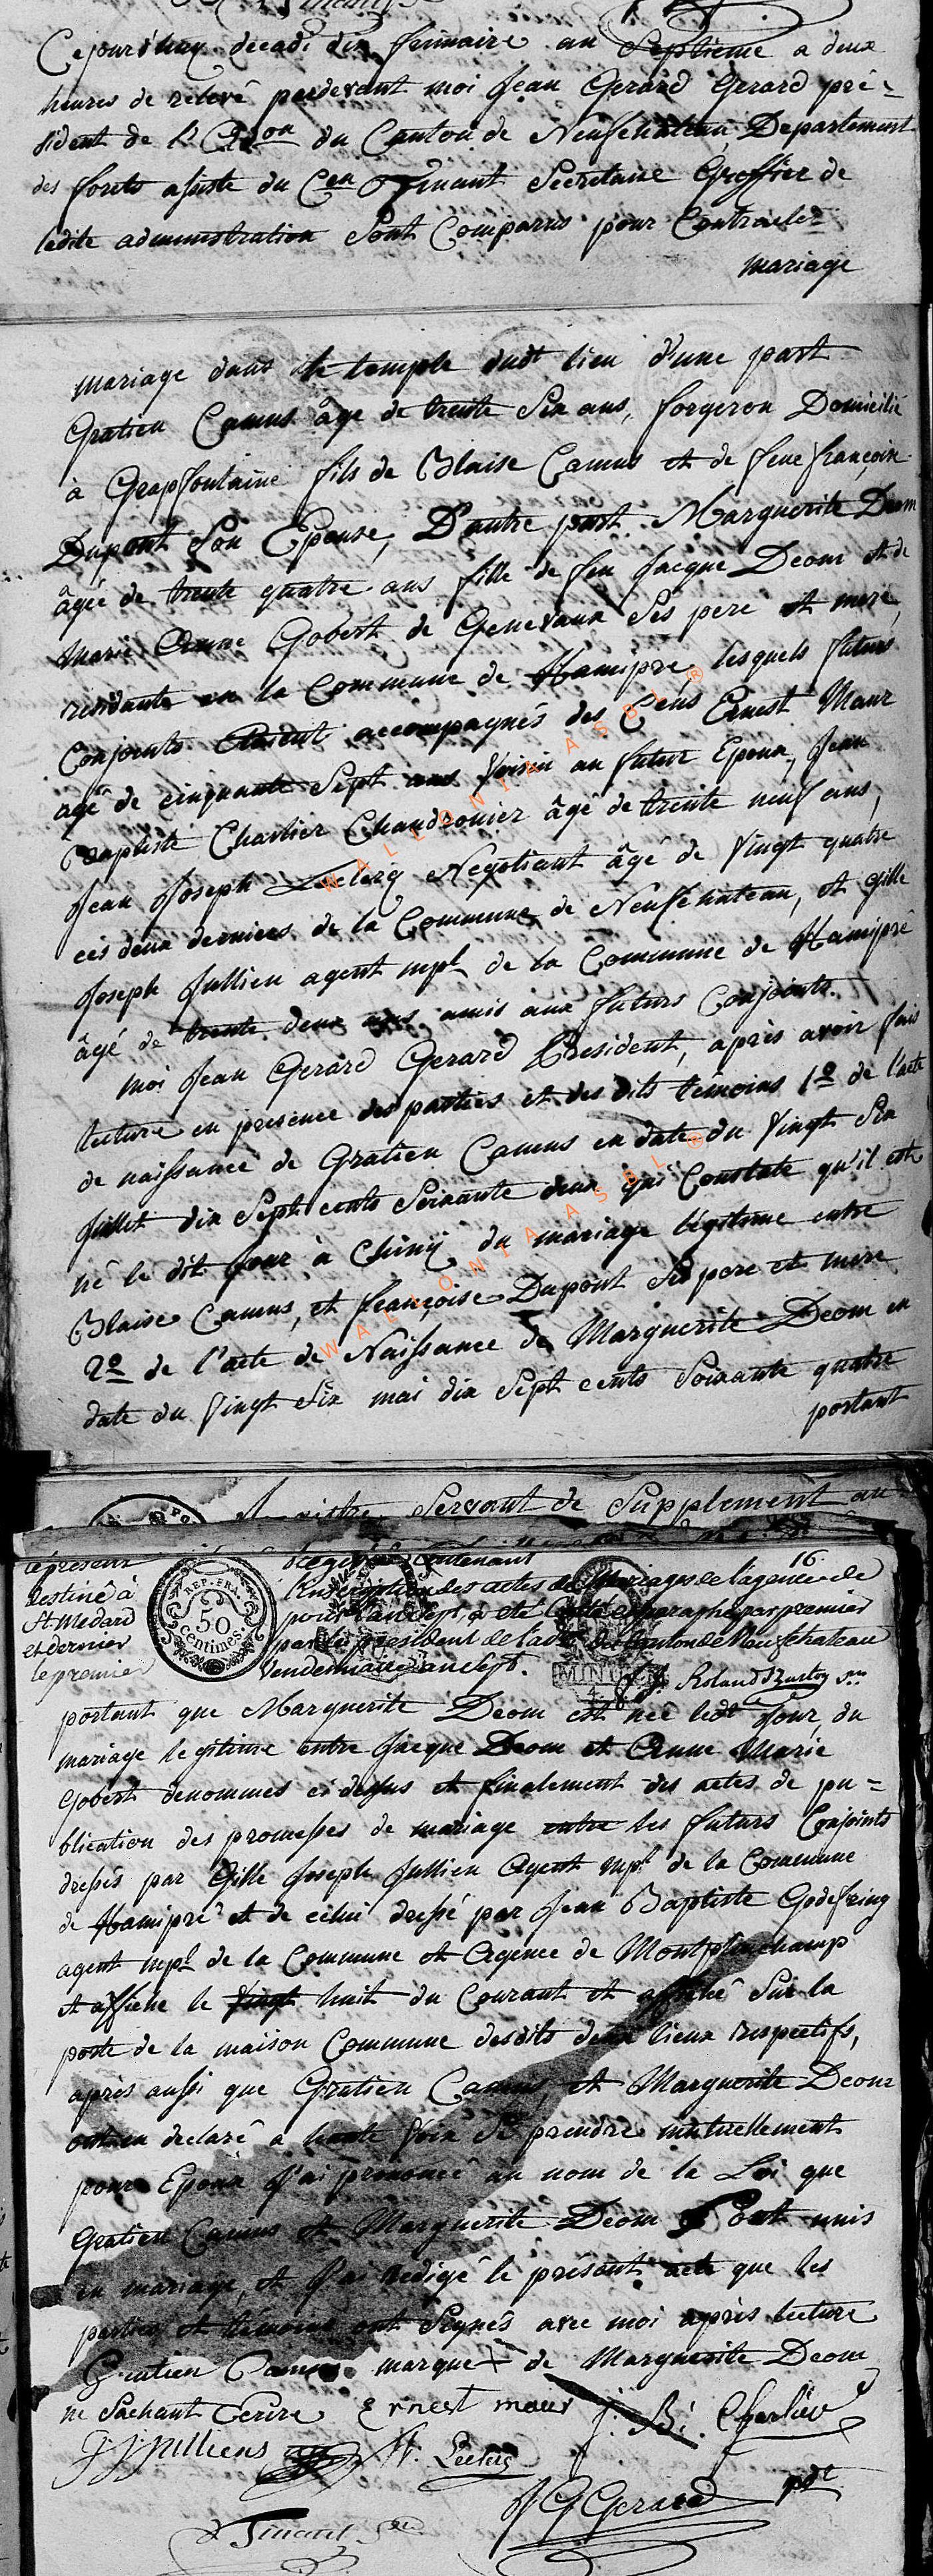 Cejourd'huy decadi dix frimaire an Septieme a deux
heures de relevé pardevant moi Jean Gerard Gerard pré=
sident de l'Adon du Canton de Neufchateau Departement
des forets assisté du Cen Tinant Secretaire Greffier de
ladite administration Sont Comparus pour Contracter
mariage
mariage dans le temple dudt lieu d'une part
Gratien Camus âgé de trente Six ans, forgeron Domicilié
à Grapfontaine fils de Blaise Camus et de feue françoise
Dupont Son Epouse, D'autre part Marguerite Deom
âgée de trente quatre ans fille de feu Jacque Deom et de
Marie Anne Gobert de Genevaux Ses pere et mere,
residante en la Commune de Hamipré lesquels futurs
Conjoints étaient accompagnés des Cens Ernest Maur
agé de cinquante Sept ans Voisin au futur Epoux, Jean
Baptiste Charlier Chaudronier âgé de trente neuf ans,
Jean Joseph Leclerq Négotiant âgé de Vingt quatre
ces deux derniers de la Commune de Neufchateau, et gille
Joseph Jullien agent mpl de la Commune de Hamipré
âgé de trente deux ans amis aux futurs Conjoints.
moi Jean Gerard Gerard President, après avoir fais
lecture en presence des parties et des dits témoins 1º de l'acte
de naissance de Gratien Camus en date du Vingt Six
Juillet dix Sept cents Soixante deux qui Constate qu'il est
né le dit Jour à Chiny du mariage légitime entre
Blaise Camus, et françoise Dupont Ses pere et mere
2º de l'acte de Naissance de Marguerite Deom en
date du Vingt Six mai dix Sept cents Soixante quatre
portant
WALLONIA ASBL ®
WALLONIA ASBL ®
Registre Servant de Supplement au
16.
le present
destiné à
St Medard
et dernier
le premier
REP. FRA.
50
centimes.
Registre Contenant
l'inscription des actes de Mariages de l'agence de
pour l'an Sept, a été Cotté et paraphé par premier
par le president de l'adon du Canton de Neufchateau
Vendemiaire an Sept.
portant que Marguerite Deom est née ledt Jour, du
mariage legitime entre Jacque Deom et Anne Marie
Gobert denommés ci dessus et finalement des actes de pu=
blication des promesses de mariage entre les futurs Conjoints
dressés par Gille Joseph Jullien Agent mpl de la Commune
de Hamipré et de celui dressé par Jean Baptiste Godefring
agent mpl de la Commune et Agence de Montplainchamp
et affiché le Vingt huit du Courant et affiché Sur la
porte de la maison Commune desdits deux lieux respectifs,
après aussi que Gratien Camus et Marguerite Deom
ont declaré a haute Voix Se prendre mutuellement
pour Epoux J'ai prononcé au nom de la Loi que
Gratien Camus et Marguerite Deom Sont unis
en mariage, et J'ai redigé le présent acte que les
parties et témoins ont Signés avec moi après lecture
Gratien Camus marque + de Marguerite Deom
ne Sachant Ecrire Ernest maur J: B: Charlier
G J Julliens Leclercq
J G Gerard pdt
Tinant